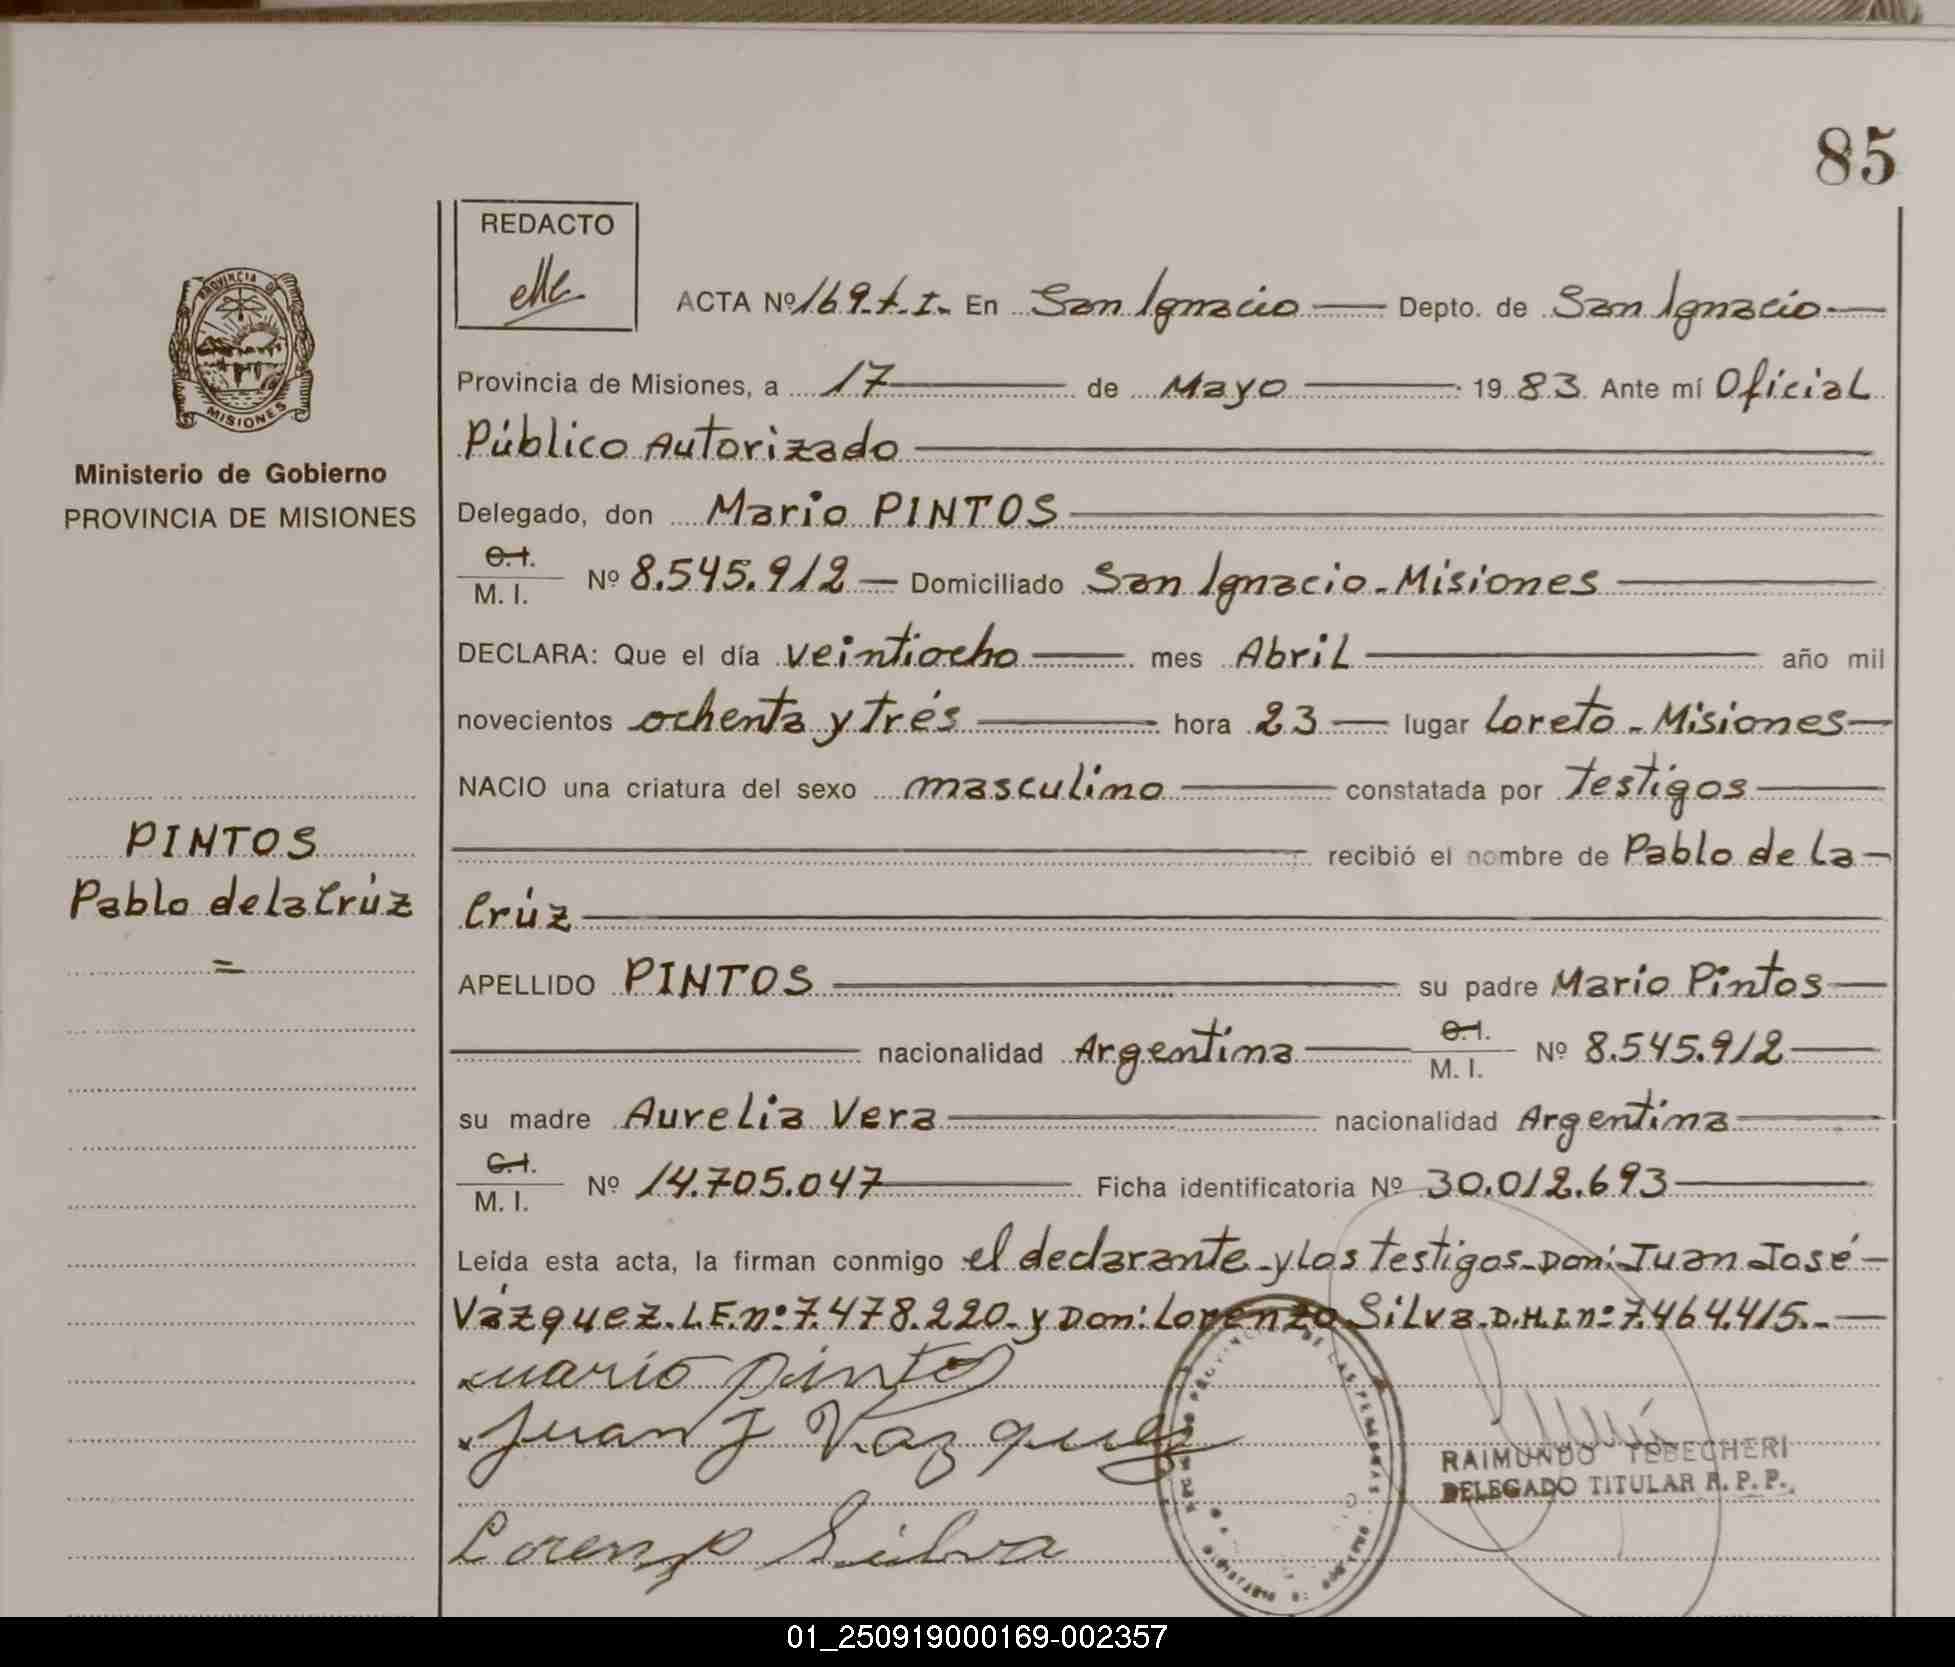 85
REDACTO
ACTA Nº 169. t. I. En San Ignacio Depto. de San Ignacio
Provincia de Misiones, a 17 de Mayo 1983. Ante mí Oficial
Público Autorizado
PROVINCIA D
MISIONES
Ministerio de Gobierno
PROVINCIA DE MISIONES
Delegado, don Mario PINTOS
C.I.
M. I. Nº 8.545.912 Domiciliado San Ignacio - Misiones
DECLARA: Que el día veintiocho mes Abril año mil
novecientos ochenta y trés hora 23 lugar Loreto - Misiones
NACIO una criatura del sexo masculino constatada por testigos
recibió el nombre de Pablo de La
Crúz
PINTOS
Pablo de la Crúz
=
APELLIDO PINTOS su padre Mario Pintos
nacionalidad Argentina C.I. M. I. Nº 8.545.912
su madre Aurelia Vera nacionalidad Argentina
C.I.
M. I. Nº 14.705.047 Ficha identificatoria Nº 30.012.693
Leída esta acta, la firman conmigo el declarante - y Los testigos - Don: Juan José
Vázquez. L.E. nº: 7.478.220 - y Don: Lorenzo Silva. D.N.I. nº: 7.464.415.-
mario pintos
Juan J Vazquez
Lorenzo Silva
RAIMUNDO TEBECHERI
DELEGADO TITULAR R. P. P.
01_250919000169-002357